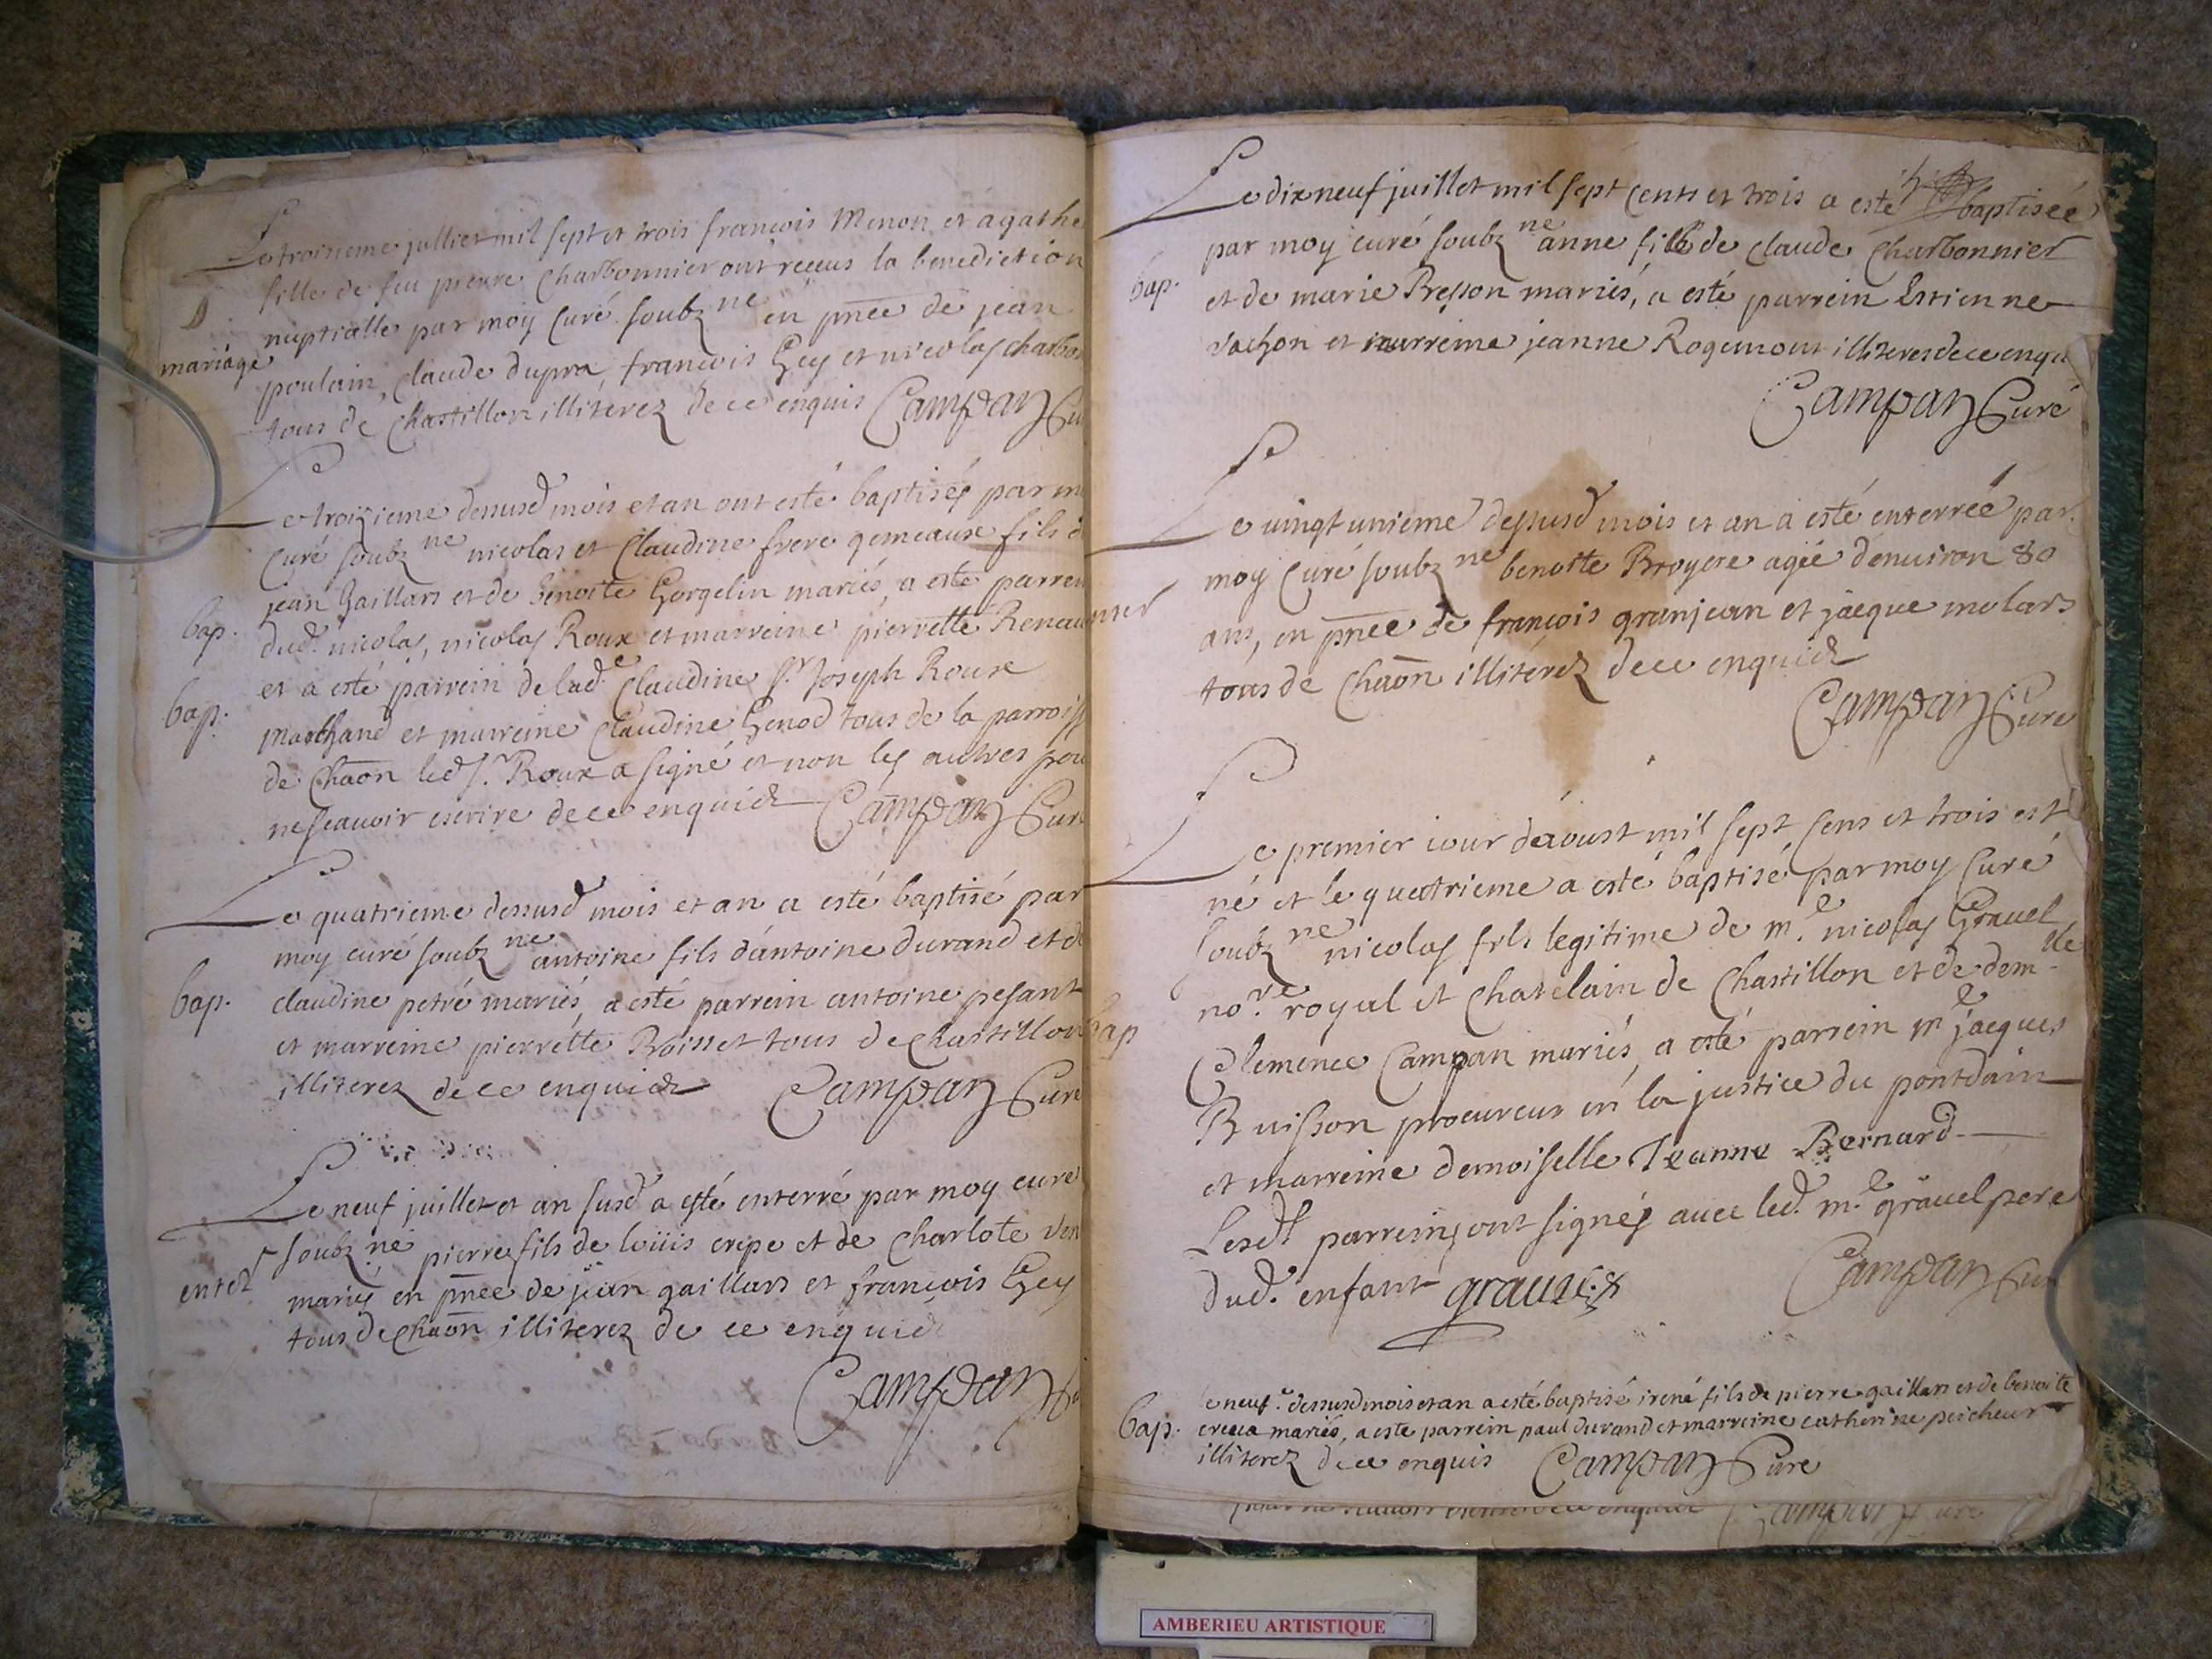 Le troisieme julliet mil sept et trois francois Menon et agathe
fille de feu pierre Charbonnier ont receus la benediction
nuptialle par moy Curé soubz ne en pnce de jean
mariage
poulain, Claude dupra, francois Gey et nicolas charbon
tous de Chastillon illiterez de ce enquis Campan Cu
Le troizieme dessusd mois et an ont esté baptisés par m
Curé soubz ne nicolas et Claudine frere gemeaux fils d
jean Gaillars et de Benoite Gorgelin mariés, a esté parrei
bap.
dud. nicolas, nicolas Roux et marreine pierrette Renau
et a esté parrein de lad.e Claudine Sr. Joseph Roux
bap.
marchand et marreine Claudine Genod tous de la parroiss
de Chaōn led Sr. Roux a signé et non les autres pou
ne scauoir escrire de ce enquidz Campan Cure
Le quatrieme dessusd mois et an a esté baptisé par
moy curé soubz ne antoine fils d'antoine durand et de
bap.
claudine petré mariés, a esté parrein antoine pesant
et marreine pierrette Boisset tous de Chastillon
illiterez de ce enquidz Campan Cure
Le neuf juillet et an susd a esté enterré par moy curé
soubz ne pierre fils de loüis crepe et de Charlote
enter
mariés en pnce de jean gaillars et francois Gey
tous de Chaōn illiterez de ce enquidz
Campan Cu
Le dix neuf juillet mil sept cents et trois a esté baptisée
par moy curé soubz ne anne fille de claude Charbonnier
bap.
et de marie Besson mariés, a esté parrein Estienne
vachon et marreine jeanne Rogemont illiteres de ce enqu
Campan Curé
Le uingt unieme dessusd mois et an a esté enterrée par
moy Curé soubz ne benoite Broyere agée denuiron 80
enter
ans, en pnce de francois granjean et jacque molars
tous de Chaōn illiterez de ce enquidz
Campan Cure
Le premier iour daoust mil sept sens et trois est
né et le quatrieme a esté baptisé par moy Curé
soubz ne nicolas fils legitime de m.e nicolas Grauel
no.re royal et Chatelain de Chastillon et de dem.lle
bap
Clemence Campan mariés, a esté parrein m.e jacques
Buisson procureur en la justice du pontdain
et marreine demoiselle Jeanne Bernard
Lesd. parreins ont signés auec led. m.e grauel pere
dud. enfant grauel Campan Cur
Le neuf.e dessusd mois et an a esté baptisé irené fils de pierre gaillars et de benoite
bap.
mariés, a esté parrein paul durand et marreine catherine peicheur
illiterez de ce enquis Campan Cure
pour ne scauoir escrire de ce enquidz Campan Cure
AMBERIEU ARTISTIQUE